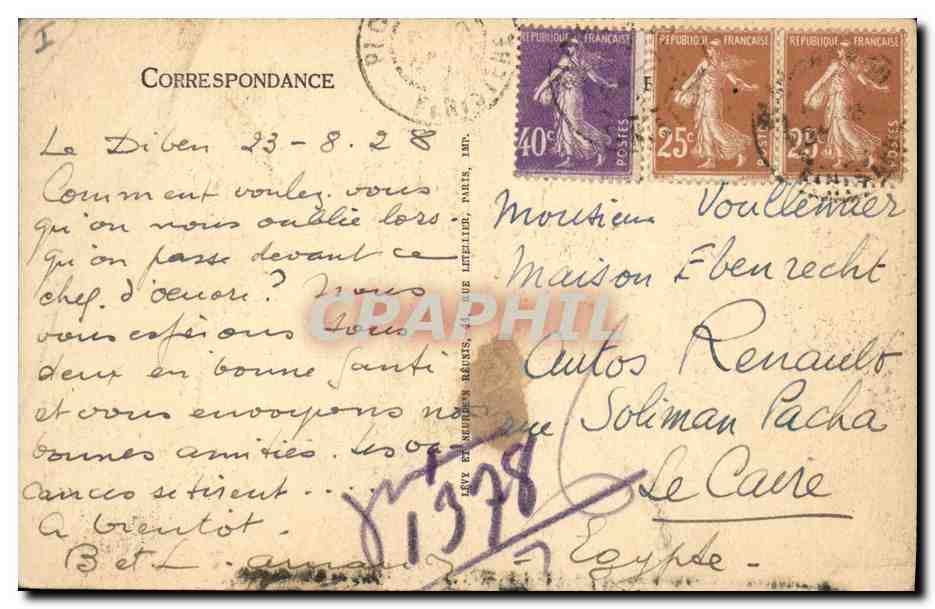 I
CORRESPONDANCE
FINISTERE
REPUBLIQUE FRANÇAISE
40c
POSTES
REPUBLIQUE FRANÇAISE
25c
POSTES
REPUBLIQUE FRANÇAISE
25c
POSTES
Le Diben 23-8.28
Comment voulez vous
qu'on nous oublie lors-
qu'on passe devant ce
chef d'oeuvre? Nous
vous espérons tous
deux en bonne santé
et vous envoyons nos
bonnes amitiés. Les va-
cances se tirent....
A bientôt.
B et L.
LÉVY ET NEURDEIN RÉUNIS, 44, RUE LETELLIER, PARIS, IMP.
Monsieur Voullemier
Maison Ebenrecht
Autos Renault
rue Soliman Pacha
Le Caire
Egypte
1378
CRAPHIL